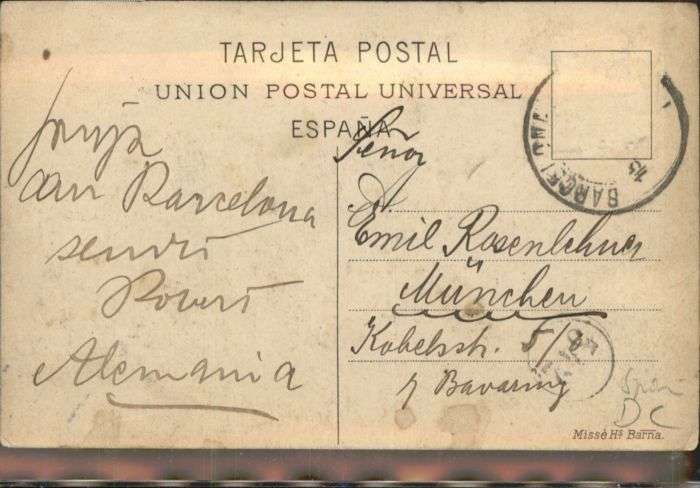 TARJETA POSTAL
UNION POSTAL UNIVERSAL
ESPAÑA
aus Barcelona
sendet
Robert
Alemania
Señor
Emil Rosenlehner
München
Kobelstr. 5/
Bavaring
BARCELONA
DC
Missé Hs Barna.